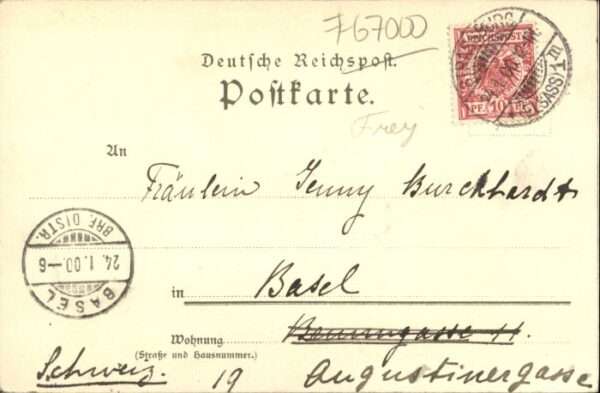 767000
Deutsche Reichspost.
Postkarte.
Frey
REICHSPOST
PF. 10 PF.
STRASSBURG
(ELSASS) 1 m
An
Fräulein Jenny Burckhardt
BASEL
24. 1. 00. – 6
BRF. DISTR.
in Basel
Wohnung
(Straße und Hausnummer.)
Schweiz. 19 Augustinergasse